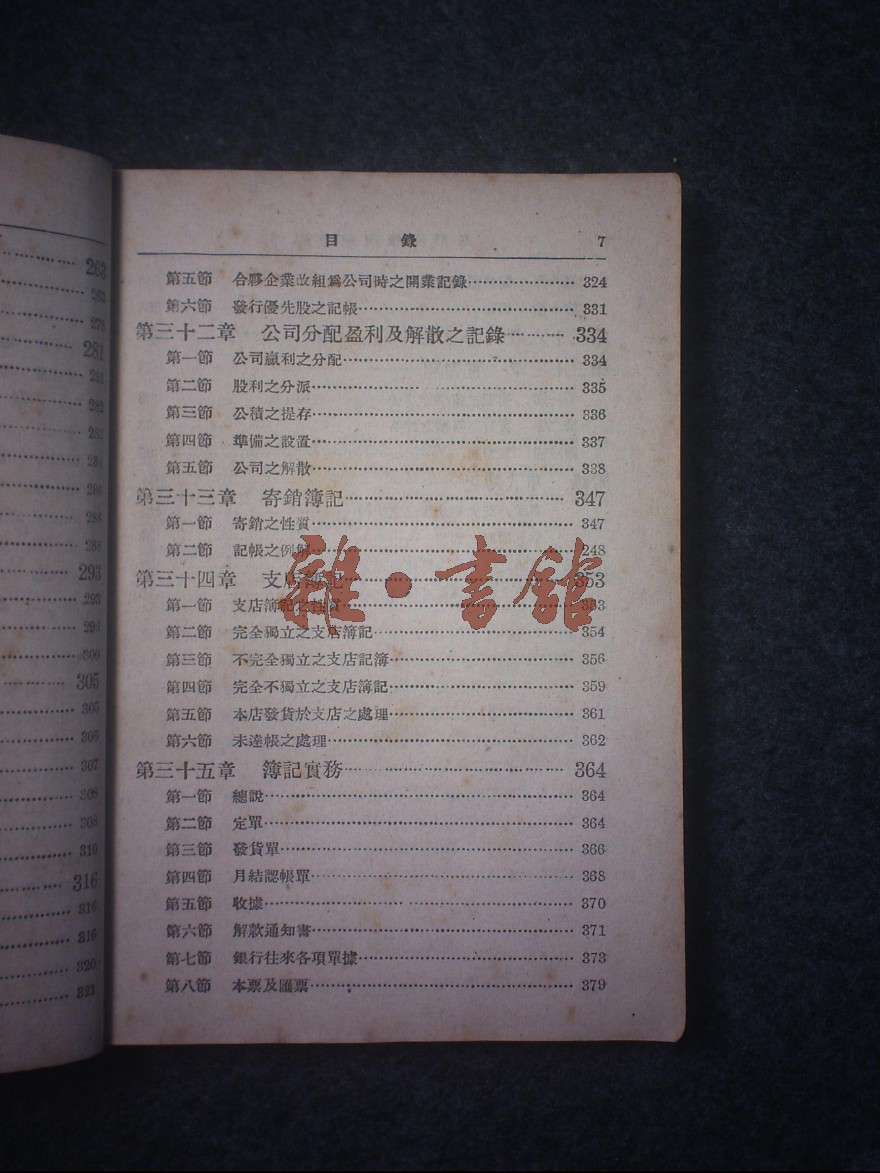 263
263
278
281
281
282
283
284
286
288
288
293
293
294
300
305
305
306
307
308
308
310
316
316
316
320
321
目錄 7
第五節 合夥企業改組爲公司時之開業記錄 324
第六節 發行優先股之記帳 331
第三十二章 公司分配盈利及解散之記錄 334
第一節 公司贏利之分配 334
第二節 股利之分派 335
第三節 公積之提存 336
第四節 準備之設置 337
第五節 公司之解散 338
第三十三章 寄銷簿記 347
第一節 寄銷之性質 347
第二節 記帳之例解 248
第三十四章 支店簿記 353
第一節 支店簿記之性質 353
第二節 完全獨立之支店簿記 354
第三節 不完全獨立之支店記簿 356
第四節 完全不獨立之支店簿記 359
第五節 本店發貨於支店之處理 361
第六節 未達帳之處理 362
第三十五章 簿記實務 364
第一節 總說 364
第二節 定單 364
第三節 發貨單 366
第四節 月結認帳單 368
第五節 收據 370
第六節 解款通知書 371
第七節 銀行往來各項單據 373
第八節 本票及匯票 379
雜·書館